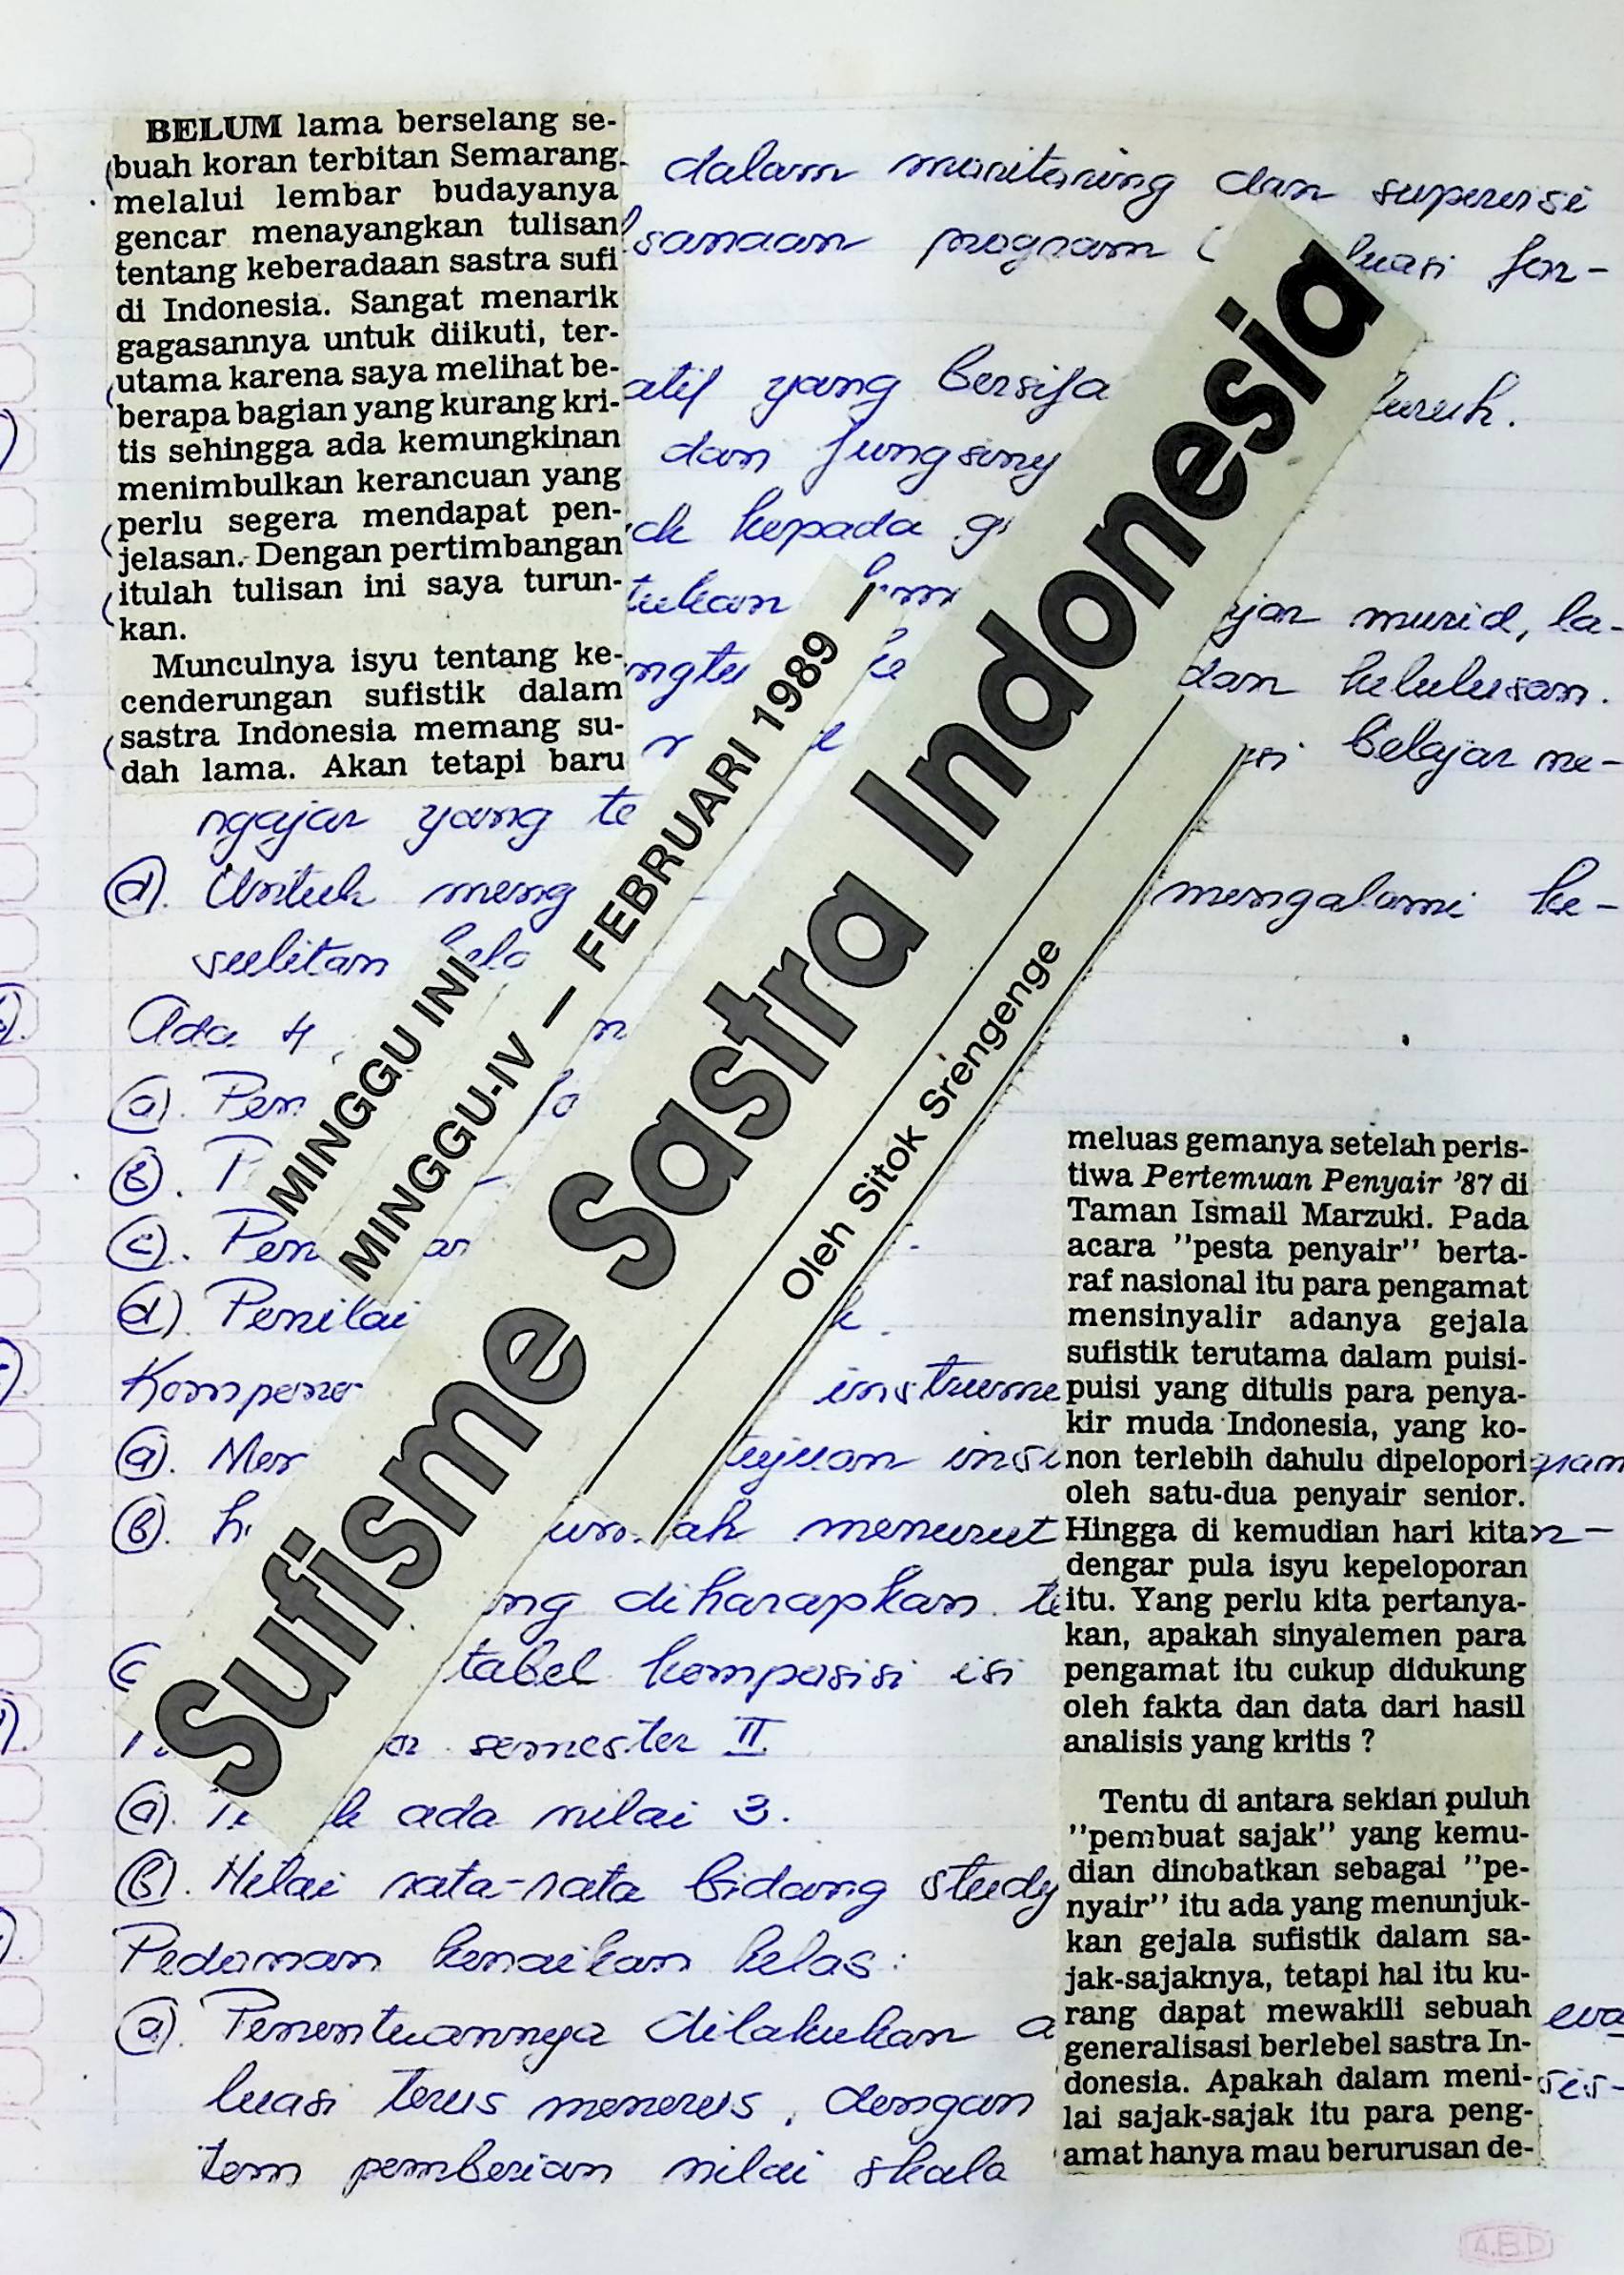 BELUM lama berselang se-
buah koran terbitan Semarang
melalui lembar budayanya
gencar menayangkan tulisan
tentang keberadaan sastra sufi
di Indonesia. Sangat menarik
gagasannya untuk diikuti, ter-
utama karena saya melihat be-
berapa bagian yang kurang kri-
tis sehingga ada kemungkinan
menimbulkan kerancuan yang
perlu segera mendapat pen-
jelasan. Dengan pertimbangan
itulah tulisan ini saya turun-
kan.
Munculnya isyu tentang ke-
cenderungan sufistik dalam
sastra Indonesia memang su-
dah lama. Akan tetapi baru
MINGGU INI
MINGGU-IV — FEBRUARI 1989 —
Sufisme Sastra Indonesia
Oleh Sitok Srengenge
meluas gemanya setelah peris-
tiwa Pertemuan Penyair '87 di
Taman Ismail Marzuki. Pada
acara "pesta penyair" berta-
raf nasional itu para pengamat
mensinyalir adanya gejala
sufistik terutama dalam puisi-
puisi yang ditulis para penya-
kir muda Indonesia, yang ko-
non terlebih dahulu dipelopori
oleh satu-dua penyair senior.
Hingga di kemudian hari kita
dengar pula isyu kepeloporan
itu. Yang perlu kita pertanya-
kan, apakah sinyalemen para
pengamat itu cukup didukung
oleh fakta dan data dari hasil
analisis yang kritis ?
Tentu di antara sekian puluh
"pembuat sajak" yang kemu-
dian dinobatkan sebagai "pe-
nyair" itu ada yang menunjuk-
kan gejala sufistik dalam sa-
jak-sajaknya, tetapi hal itu ku-
rang dapat mewakili sebuah
generalisasi berlebel sastra In-
donesia. Apakah dalam meni-
lai sajak-sajak itu para peng-
amat hanya mau berurusan de-
dalam monitoring dan supervisi
program
yang
dan
kepada
murid, la-
dan kelulusan.
belajar me-
ngajar yang
d). Untuk mengalami ke-
sulitan
Ada 4
a).
b).
c).
d).
a). tujuan
b). menurut
diharapkan
tabel komposisi isi
semester II
a). ada nilai 3.
b). Nilai rata-rata bidang study
Pedoman kenaikan kelas :
a). Penentuannya dilakukan eva
luasi terus menerus, dengan sis-
tem pemberian nilai skala
A.B.D